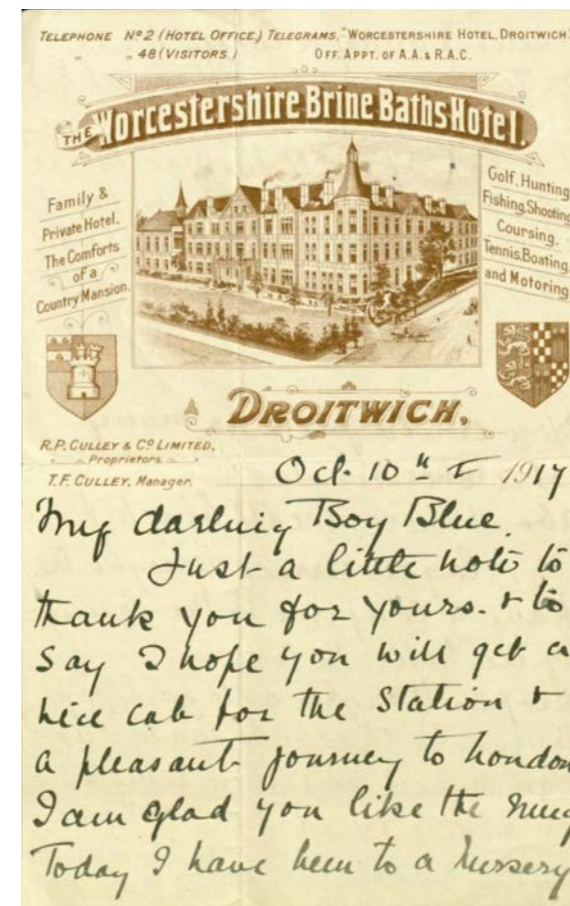 TELEPHONE Nº 2 (HOTEL OFFICE.) TELEGRAMS, "WORCESTERSHIRE HOTEL, DROITWICH
" " 48 (VISITORS.) OFF. APPT. OF A.A. & R.A.C.
THE Worcestershire Brine Baths Hotel.
Family &
Private Hotel.
The Comforts
of a
Country Mansion.
Golf, Hunting
Fishing, Shooting
Coursing,
Tennis, Boating,
and Motoring
DROITWICH,
R.P. CULLEY & Cº LIMITED,
Proprietors
T.F. CULLEY, Manager.
Oct. 10th 1917
My darling Boy Blue.
Just a little note to
thank you for yours. & to
say I hope you will get a
nice cab for the Station &
a pleasant journey to London
I am glad you like the mug
Today I have been to a Nursery